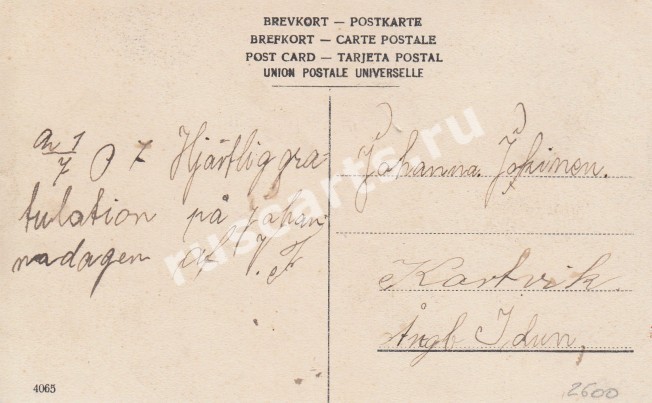 BREVKORT — POSTKARTE
BREFKORT — CARTE POSTALE
POST CARD — TARJETA POSTAL
UNION POSTALE UNIVERSELLE
1/7 07 Hjärtlig gra-
tulation på Johan-
nadagen af
Johanna
Kartvik.
Ångb Idun,
4065
2600
ruscarts.ru